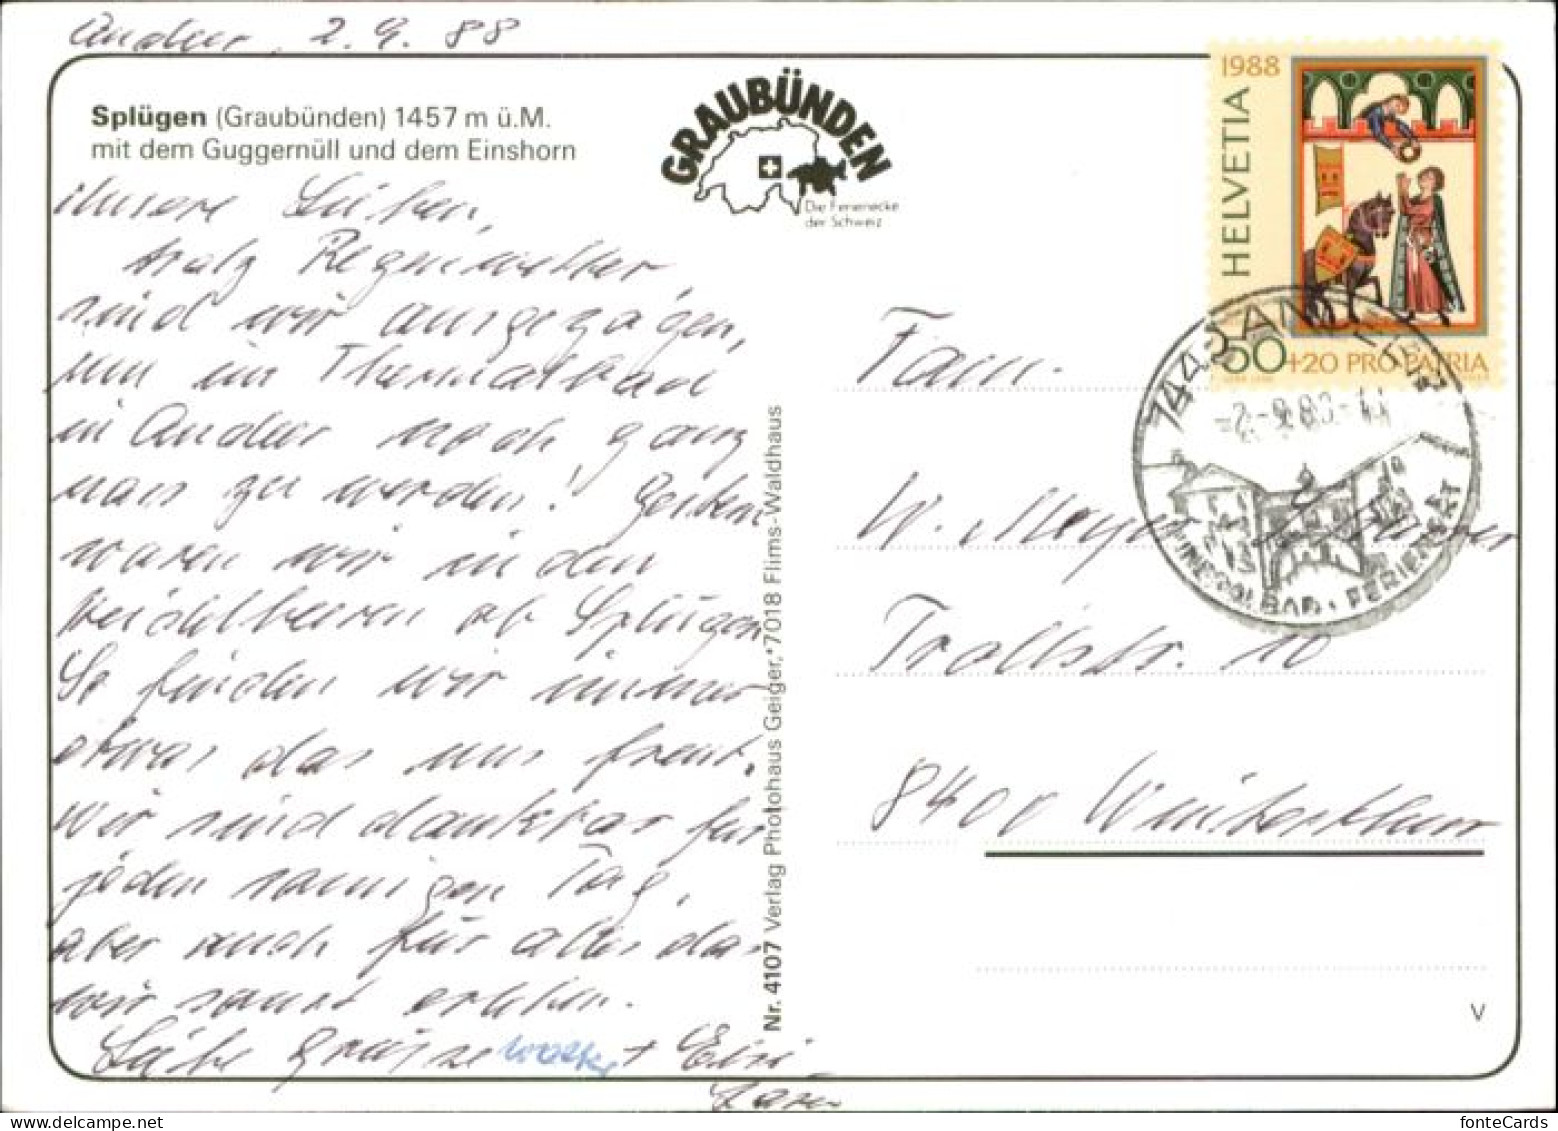 Andeer, 2. 9. 88
Splügen (Graubünden) 1457 m ü.M.
mit dem Guggernüll und dem Einshorn
GRAUBÜNDEN
Die Ferienecke
der Schweiz
Unsere Lieben,
trotz Regenwetter,
sind wir ausgezogen,
um im Thermalbad
in Andeer noch ganz
nass zu werden! Gestern
waren wir in den
Heidelbeeren ob Splügen
So finden wir immer
etwas das uns freut.
Wir sind dankbar für
jeden sonnigen Tag,
aber auch für alles das
wir sonst erleben.
Liebe Grüsse + 
Nr. 4107 Verlag Photohaus Geiger, 7018 Flims-Waldhaus
1988
HELVETIA
50 +20 PRO PATRIA
7440 ANDEER
-2.-9.88-
MINERALBAD. FERIENORT
Fam.
W. Meyer
Trollstr. 10
8400 Winterthur
V
fonteCards